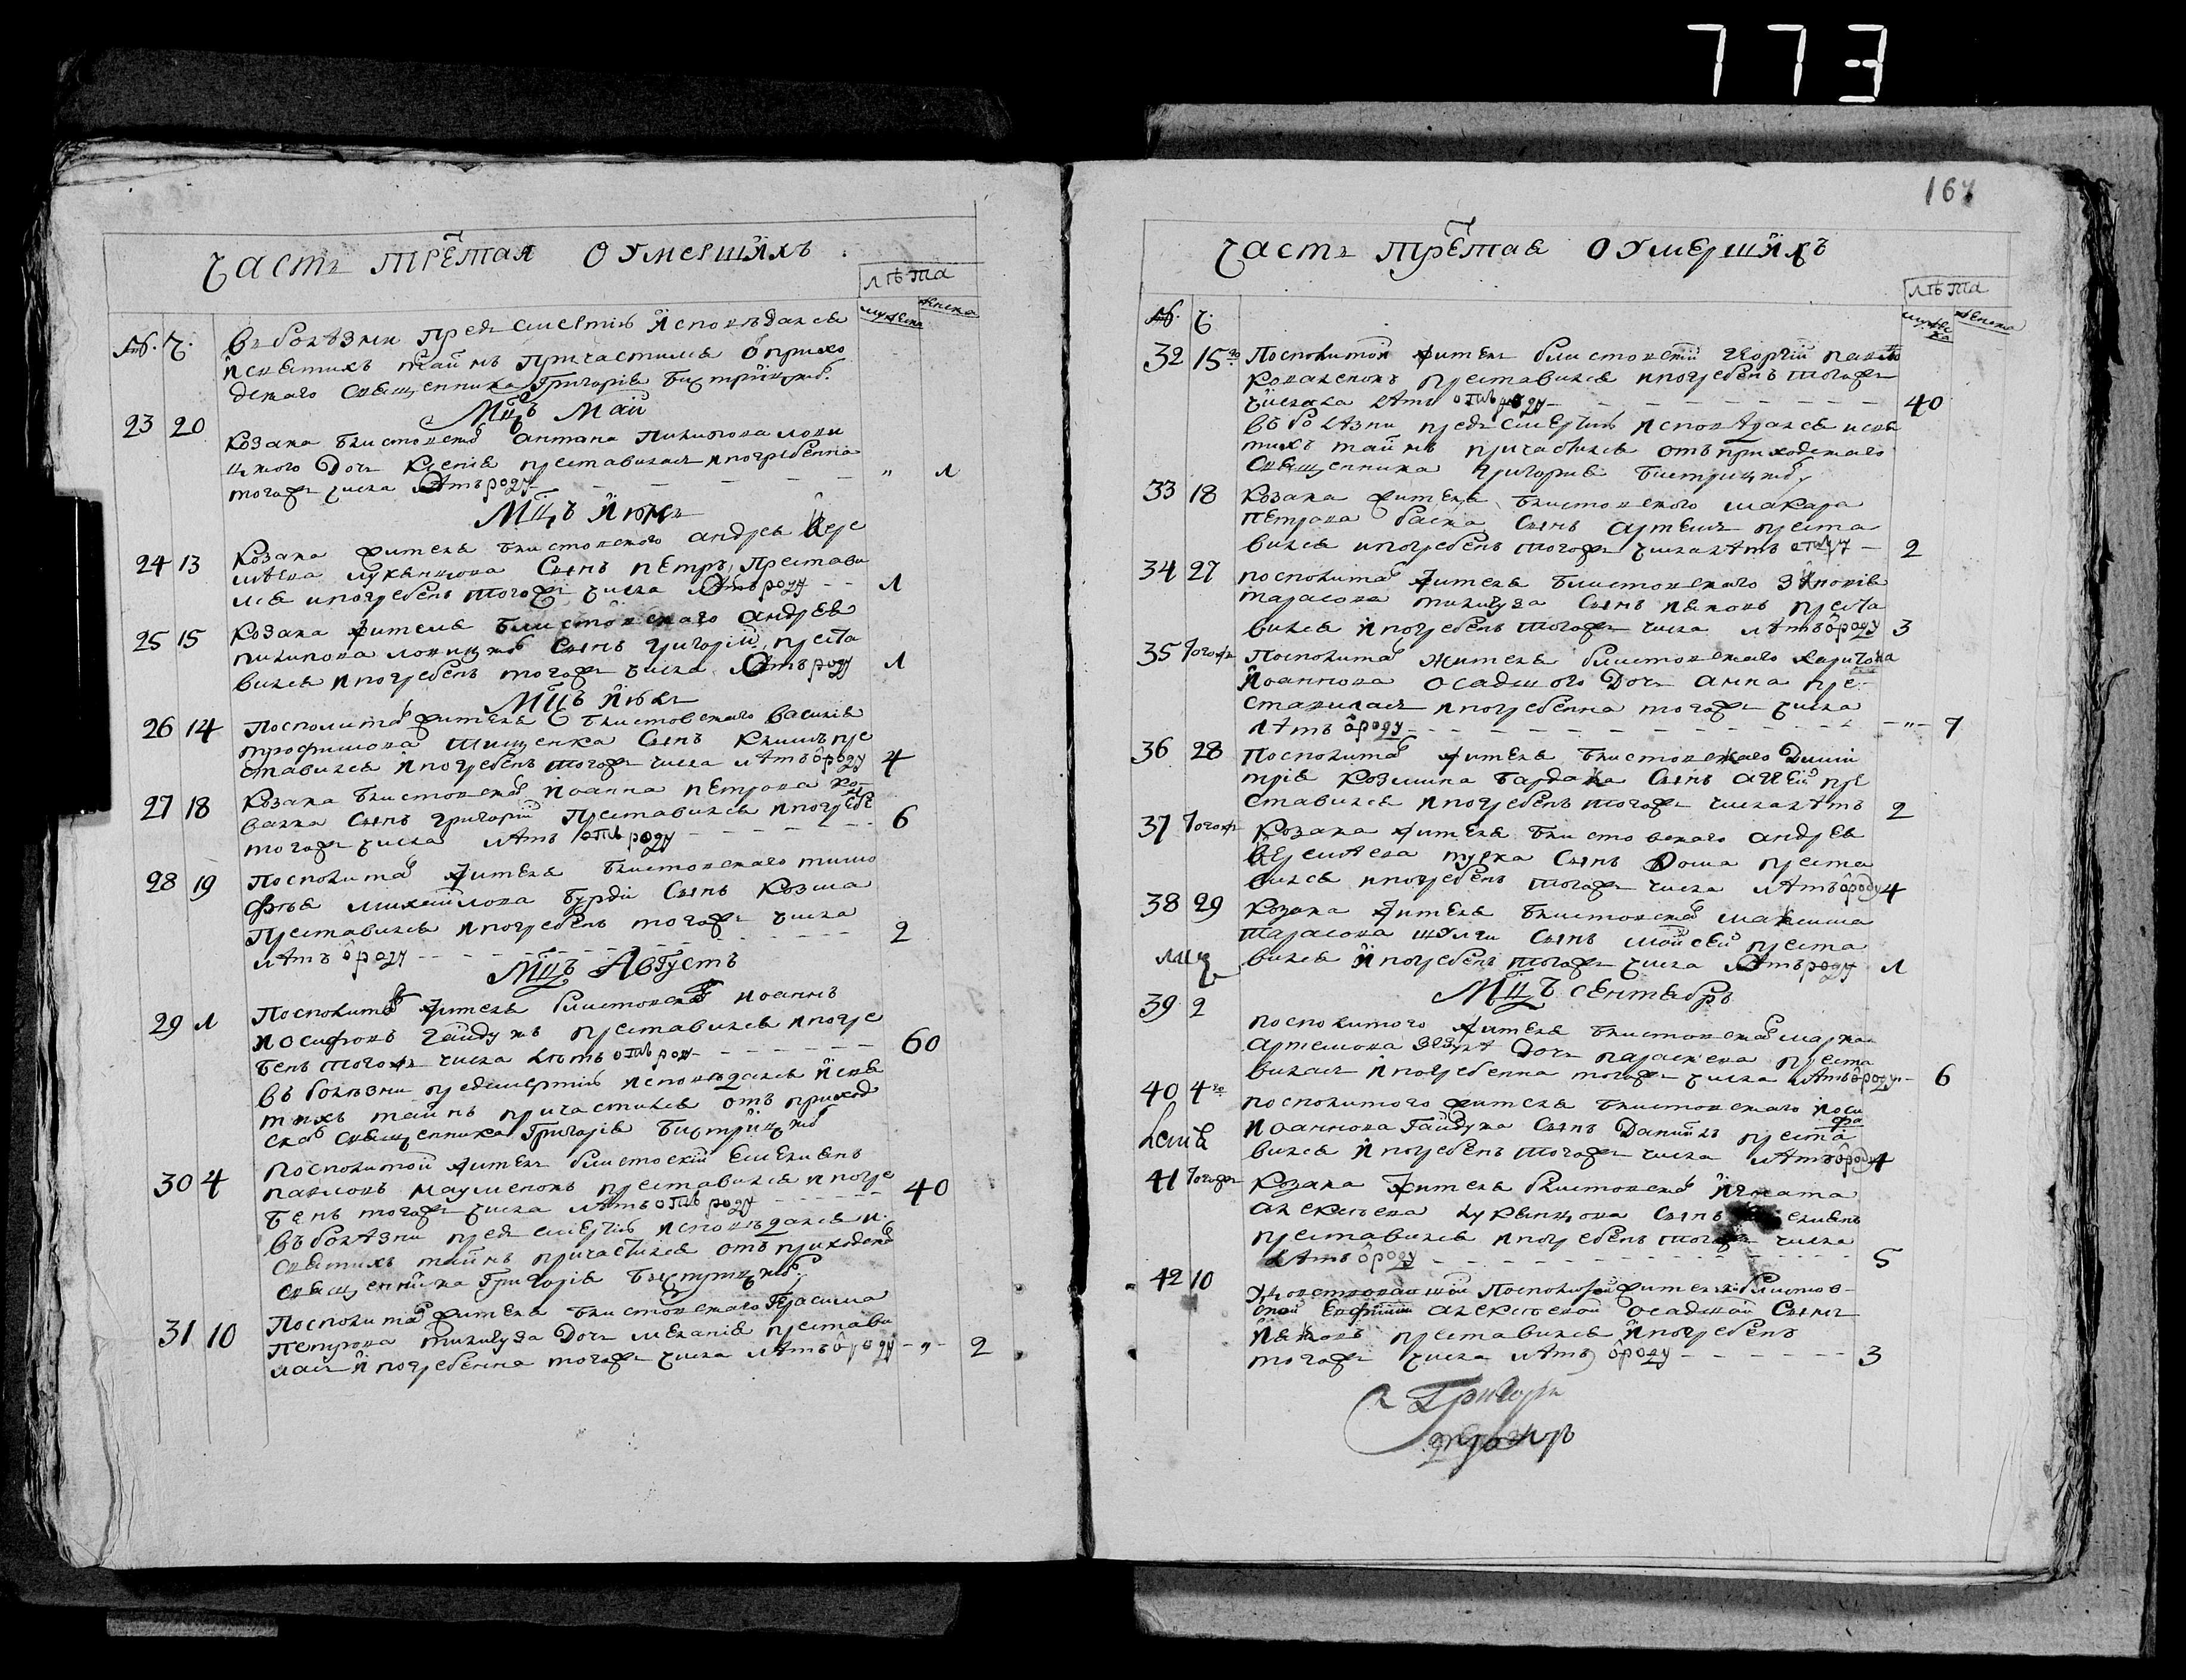 773
Часть третая о умершихъ
лѣта
мужеска женска
№. Ч.
въ болѣзни предъ смертию исповѣдался
и святихъ тайнъ причастился о прихо
дскаго священника Григория
Мцъ Май
23 20 козака блистовског антана пилипова лови
цкого дочь ксения преставилася и погребенна
тогожъ числа лѣтъ роду " 1
Мцъ Июнь
24 13 козака жителя блистовского андрея
сынъ петръ, престави
лся и погребенъ тогожъ числа лѣтъ роду 1
25 15 козака жителя блистовскаго андрея
пилипова ловицког сынъ григорий, преста
вился и погребенъ тогожъ числа лѣтъ роду 1
Мцъ Июль
26 14 посполитог жителя блистовскаго василия
трофимова тищенка сынъ климъ пре
ставился и погребенъ тогожъ числа лѣтъ ѿ роду 4
27 18 козака блистовског иоанна петрова
сынъ григорий преставился и погребе
тогожъ числа лѣтъ отъ роду 6
28 19 посполитог жителя блистовскаго тимо
фѣя михайлова бурди сынъ козма
преставился и погребенъ тогожъ числа
лѣтъ ѿ роду 2
Мцъ Августъ
29 1 посполитой житель блистовской иоаннъ
иосифовъ гайдукъ преставился и погре
бенъ тогожъ числа лѣтъ отъ роду 60
въ болѣзни предсмертию исповѣдался и свя
тихъ тайнъ причастился отъ приход
ског священника Григория
30 4 посполитой житель блистоский емелиянъ
павловъ преставился и погре
бенъ тогожъ числа лѣтъ отъ роду 40
въ болѣзни предъ смертию исповѣдался и
святихъ тайнъ причастился отъ приходског
священника Григория
31 10 посполитог жителя блистовскаго герасима
петрова дочь мелания престави
лася и погребенна тогожъ числа лѣтъ ѿ роду " 2
167
Часть третая о умершихъ
лѣта
мужес
ка женска
№. Ч.
32 15го посполитой житель блистовский георгий павло
преставился и погребенъ тогожъ
числа лѣтъ отъ роду 40
въ болѣзни предъ смертию исповѣдался и свя
тихъ тайнъ причастился отъ приходскаго
священника григория
33 18 козака жителя блистовского макара
петрова баска сынъ артемъ преста
вился и погребенъ тогожъ числа лѣтъ 2
34 27 посполитог жителя блистовскаго зѣновия
тарасова сынъ яковъ преста
вился и погребенъ тогожъ числа лѣтъ ѿ роду 3
35 тогожъ посполитог жителя блистовскаго харитона
иоаннова осадшого дочь анна пре
ставилася и погребенна тогожъ числа
лѣтъ ѿ роду " 7
36 28 посполитог жителя блистовскаго дими
трия козмина бардака сынъ агѣй пре
ставился и погребенъ тогожъ числа лѣтъ 2
37 тогожъ козака жителя блистовскаго андрея
сынъ фома преста
вился и погребенъ тогожъ числа лѣтъ ѿ роду 4
38 29 козака жителя блистовског максима
тарасова шулги сынъ мойсей преста
вился и погребенъ тогожъ числа лѣтъ роду 1
Мцъ сентябръ
39 2 посполитого жителя блистовског марка
артемова дочь параскева преста
вилася и погребенна тогожъ числа лѣтъ ѿ роду 6
40 4го посполитого жителя блистовскаго иоси
фа
иоаннова гайдука сынъ даниилъ преста
вился и погребенъ тогожъ числа лѣтъ ѿ роду 4
41 тогожъ козака жителя блистовског игната
алексѣева сынъ
преставился и погребенъ тогожъ числа
лѣтъ ѿ роду 5
42 10 посполитой жителки блистов
ской евфимии алексѣевой осадшой сынъ
яковъ преставился и погребенъ
тогожъ числа лѣтъ ѿ роду 3
Григори